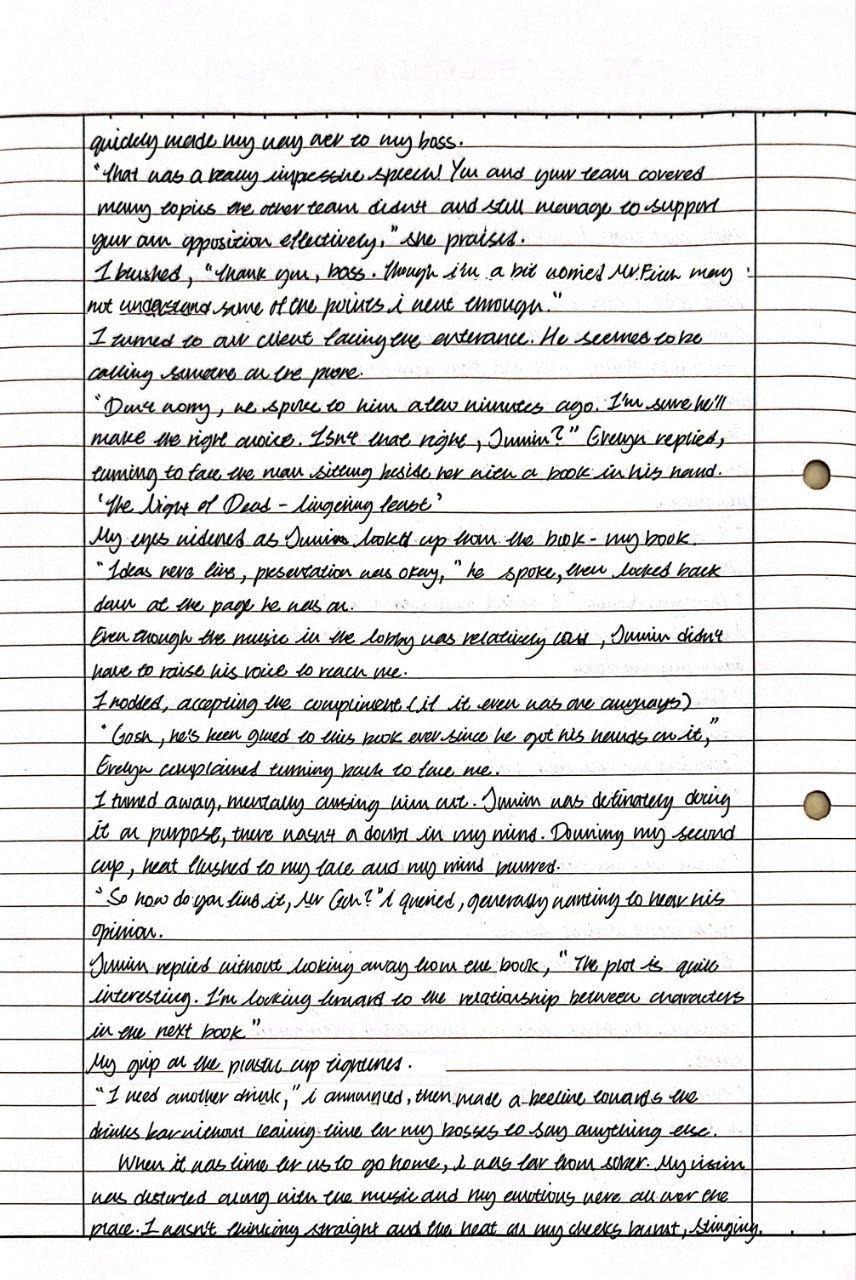 quickly made my way over to my boss.
"That was a really impessive speech! You and your team covered
many topics the other team didn't and still manage to support
your own opposition effectively," she praised.
I blushed, "Thank you, boss. Though i'm a bit worried Mr.Finn may
not understand some of the points i went through."
I turned to our client facing the enterance. He seemed to be
calling someone on the phone.
"Don't worry, we spoke to him a few minutes ago. I'm sure he'll
make the right choice. Isn't that right, Junmin?" Evelyn replied,
turning to face the man sitting beside her with a book in his hand.
'The Night of Dead - lingering feast'
My eyes widened as Junmin looked up from the book - my book.
"Ideas were fine, presentation was okay," he spoke, then looked back
down at the page he was on.
Even though the music in the lobby was relatively loud, Junmin didn't
have to raise his voice to reach me.
I nodded, accepting the compliment (if it even was one anyways)
"Gosh, he's been glued to this book ever since he got his hands on it,"
Evelyn complained turning back to face me.
I turned away, mentally cursing him out. Junmin was definately doing
it on purpose, there wasn't a doubt in my mind. Downing my second
cup, heat flushed to my face and my mind blurred.
"So how do you find it, Mr Gun?" I queried, generally wanting to hear his
opinion.
Junmin replied without looking away from the book, "The plot is quite
interesting. I'm looking forward to the relationship between characters
in the next book"
My grip on the plastic cup tightened.
"I need another drink," i announced, then made a beeline towards the
drinks bar without leaving time for my bosses to say anything else.
When it was time for us to go home, I was far from sober. My vision
was distorted along with the music and my emotions were all over the
place. I wasn't thinking straight and the heat on my cheeks burnt, stinging.